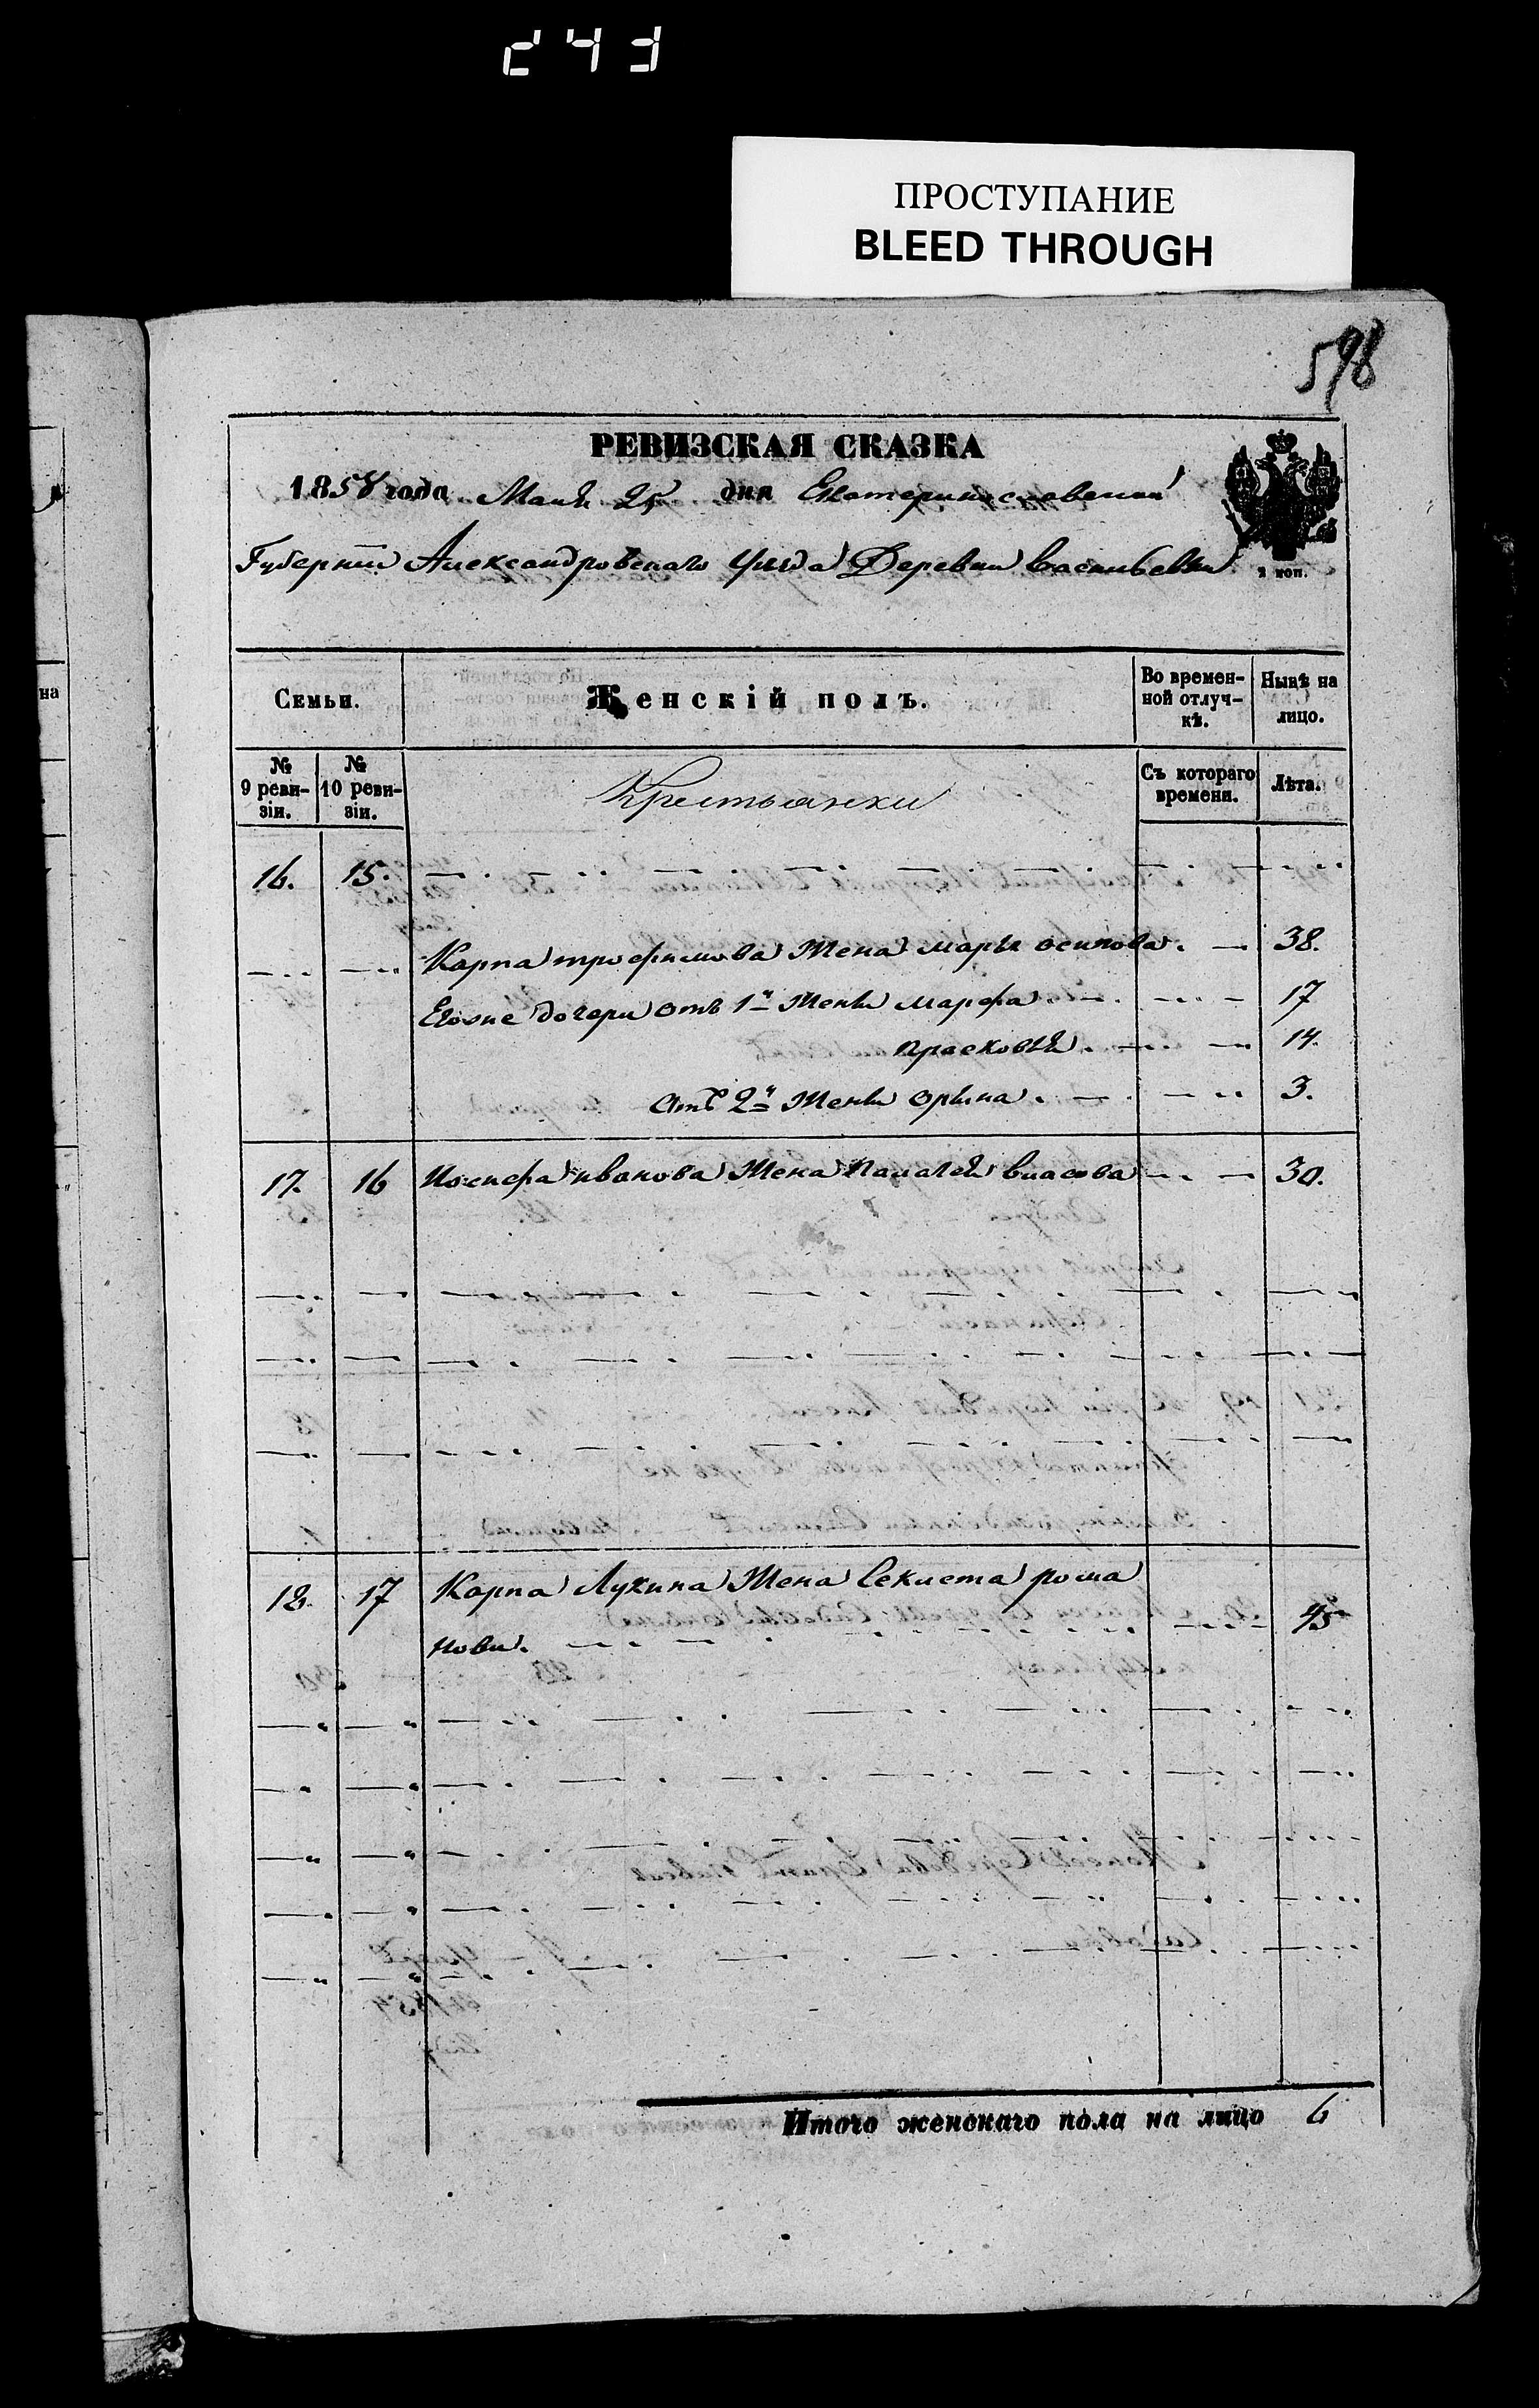 243
ПРОСТУПАНИЕ
BLEED THROUGH
598
РЕВИЗСКАЯ СКАЗКА
1858 года Маия 25 дня Екатеринославской
Губернии Александровскаго Уезда Деревни Васильевки
2 коп.
на
Семьи.
Женскій полъ.
Во времен-
ной отлуч-
кѣ.
Нынѣ на
лицо.
№
9 реви-
зіи.
№
10 реви-
зіи.
Крестьянки
Съ котораго
времени.
Лѣта.
16. 15.
Карпа трофимова Жена марья осипова 38.
Егоже дочери отъ 1й Жены марфа 17
прасковья 14.
отъ 2й Жены орына 3.
17. 16 иванова Жена власова 30.
18. 17 Карпа Лукина Жена Секлета рома
нова. 45
Итого женскаго пола на лицо 6